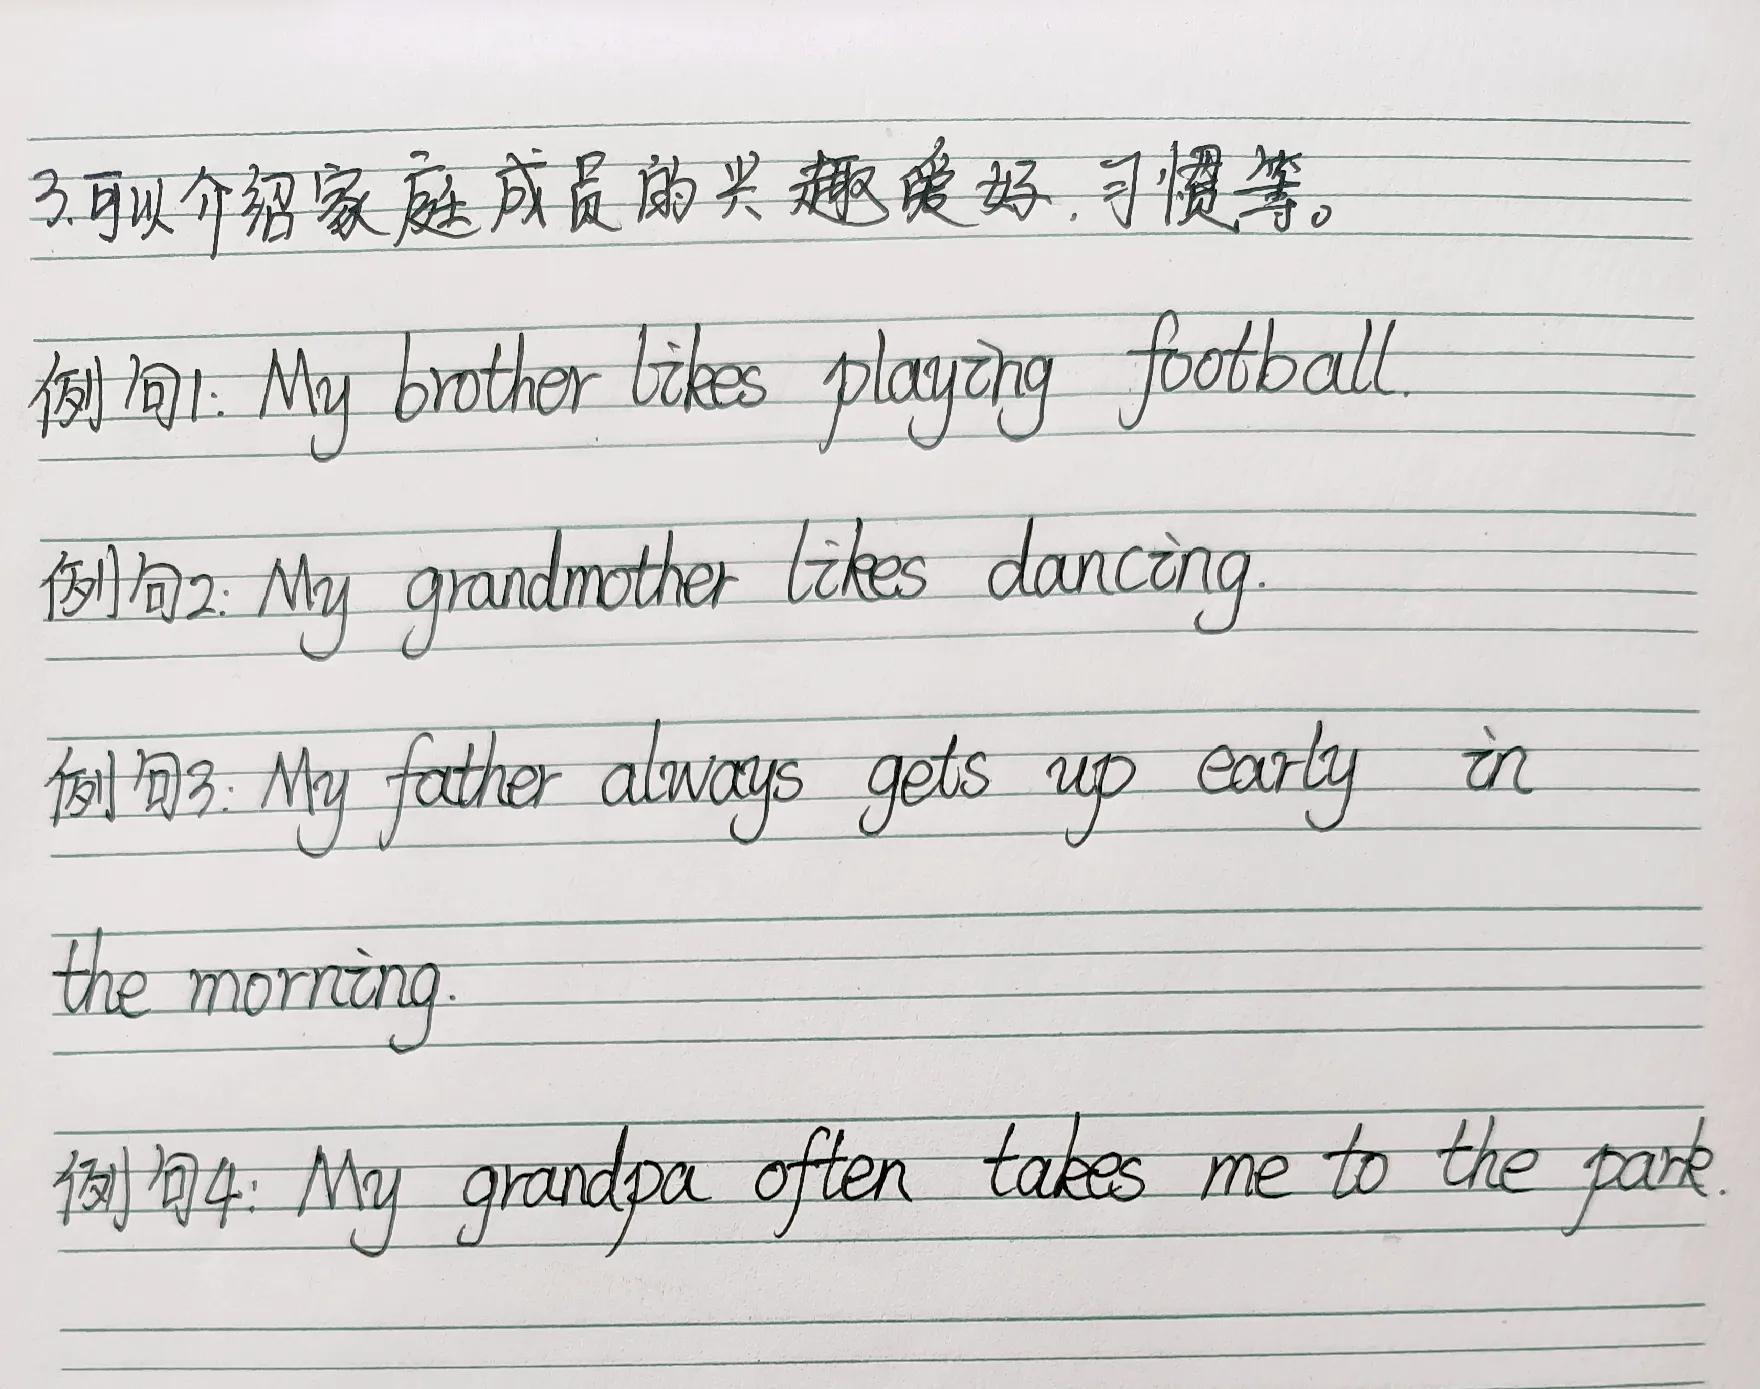 3.可以介绍家庭成员的兴趣爱好,习惯等。
例句1: My brother likes playing football.
例句2: My grandmother likes dancing.
例句3: My father always gets up early in
the morning.
例句4: My grandpa often takes me to the park.